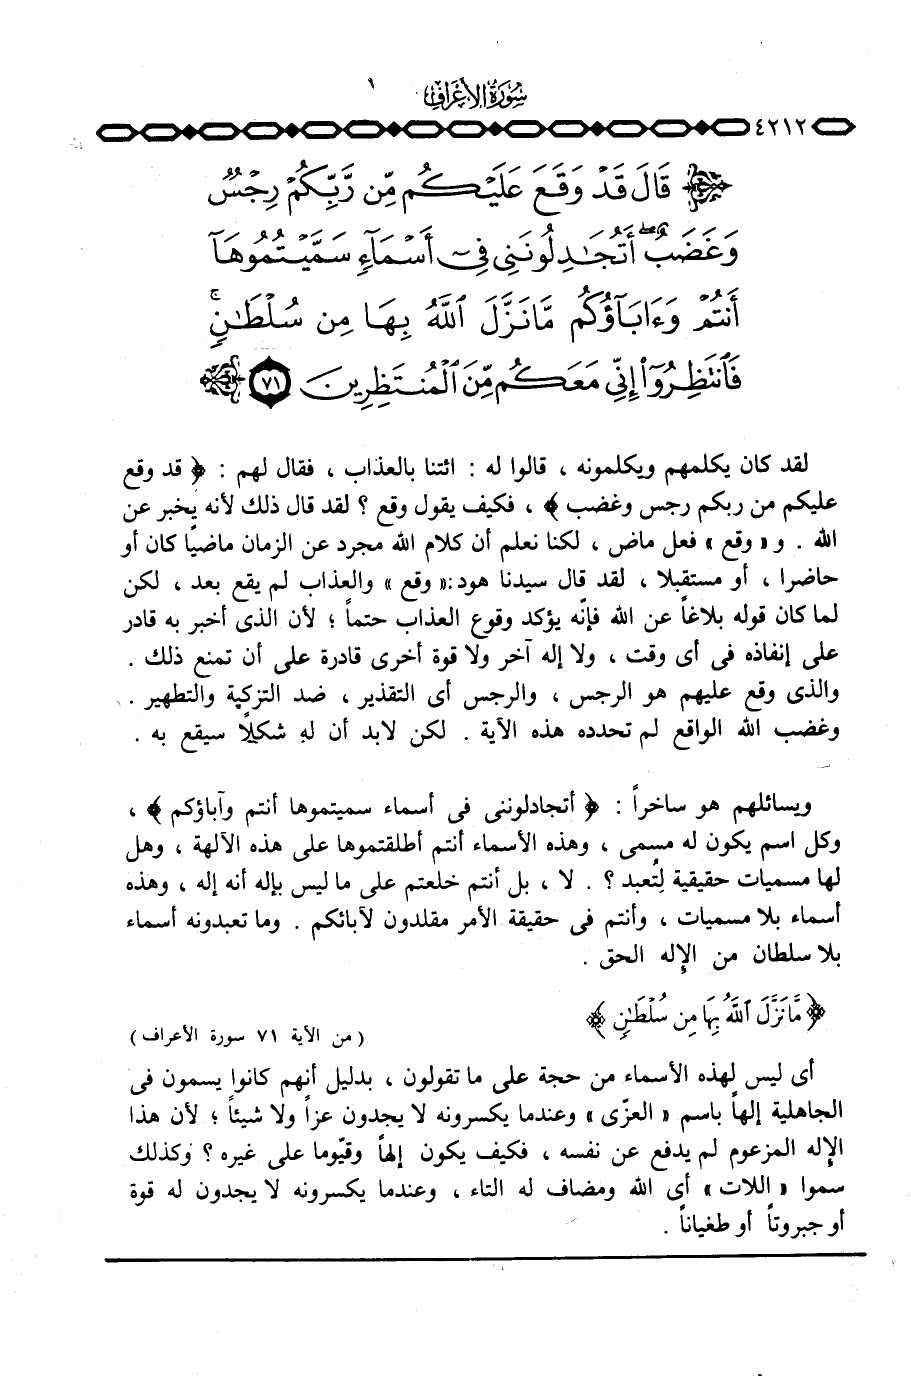 سُورَةُ الأَعْرَافِ
٤٢١٢
قَالَ قَدْ وَقَعَ عَلَيْكُم مِّن رَّبِّكُمْ رِجْسٌ
وَغَضَبٌ أَتُجَٰدِلُونَنِى فِىٓ أَسْمَآءٍ سَمَّيْتُمُوهَآ
أَنتُمْ وَءَابَآؤُكُم مَّا نَزَّلَ ٱللَّهُ بِهَا مِن سُلْطَٰنٍۚ
فَٱنتَظِرُوٓا۟ إِنِّى مَعَكُم مِّنَ ٱلْمُنتَظِرِينَ ٧١
لقد كان يكلمهم ويكلمونه ، قالوا له : ائتنا بالعذاب ، فقال لهم : ﴿ قد وقع
عليكم من ربكم رجس وغضب ﴾ ، فكيف يقول وقع ؟ لقد قال ذلك لأنه يخبر عن
الله . و « وقع » فعل ماض ، لكنا نعلم أن كلام الله مجرد عن الزمان ماضيًا كان أو
حاضرا ، أو مستقبلا ، لقد قال سيدنا هود :« وقع » والعذاب لم يقع بعد ، لكن
لما كان قوله بلاغاً عن الله فإنّه يؤكد وقوع العذاب حتماً ؛ لأن الذى أخبر به قادر
على إنفاذه فى أى وقت ، ولا إله آخر ولا قوة أخرى قادرة على أن تمنع ذلك .
والذى وقع عليهم هو الرجس ، والرجس أى التقذير ، ضد التزكية والتطهير .
وغضب الله الواقع لم تحدده هذه الآية . لكن لابد أن له شكلاً سيقع به .
ويسائلهم هو ساخراً : ﴿ أتجادلوننى فى أسماء سميتموها أنتم وآباؤكم ﴾ ،
وكل اسم يكون له مسمى ، وهذه الأسماء أنتم أطلقتموها على هذه الآلهة ، وهل
لها مسميات حقيقية لِتُعبد ؟ . لا ، بل أنتم خلعتم على ما ليس بإله أنه إله ، وهذه
أسماء بلا مسميات ، وأنتم فى حقيقة الأمر مقلدون لآبائكم . وما تعبدونه أسماء
بلا سلطان من الإله الحق .
﴿ مَّا نَزَّلَ ٱللَّهُ بِهَا مِن سُلْطَٰنٍ ﴾
( من الآية ٧١ سورة الأعراف )
أى ليس لهذه الأسماء من حجة على ما تقولون ، بدليل أنهم كانوا يسمون فى
الجاهلية إلهاً باسم « العزّى » وعندما يكسرونه لا يجدون عزاً ولا شيئاً ؛ لأن هذا
الإله المزعوم لم يدفع عن نفسه ، فكيف يكون إلهاً وقيّوما على غيره ؟ وكذلك
سموا « اللات » أى الله ومضاف له التاء ، وعندما يكسرونه لا يجدون له قوة
أو جبروتاً أو طغياناً .